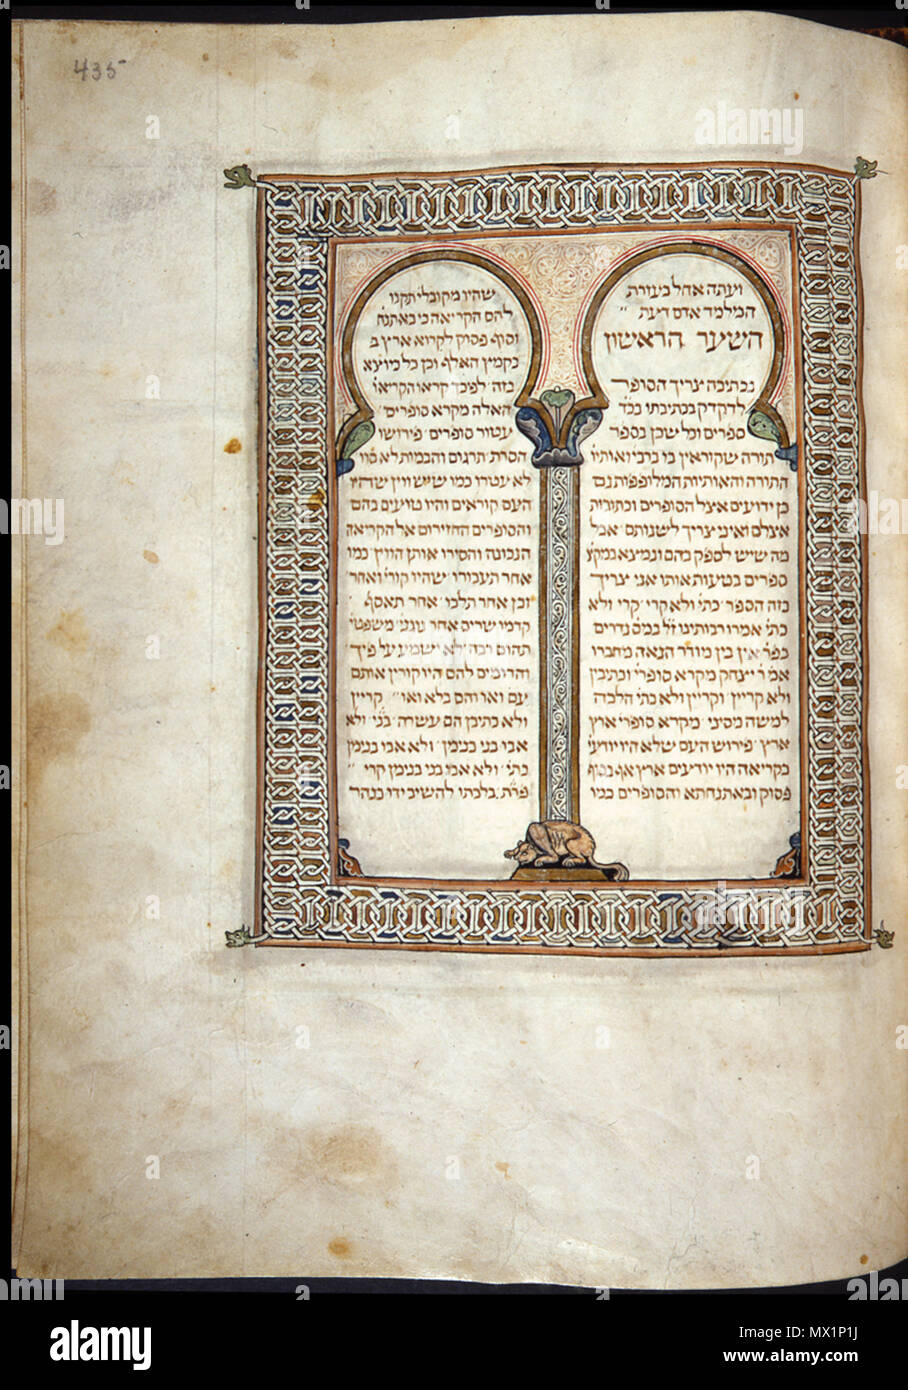 435
ועתה אחל בעזרת
המלמד אדם דעת
השער הראשון
בכתיבה צריך הסופר
לדקדק בכתיבתו ככל
ספרים וכל שכן בספר
תורה שקוראין בו ברבי ואותיו
התורה והאותיות המלופפות גם
כן ידועים אצל הסופרים וכתובות
אצלם ואינו צריך לשנותם אבל
מה שיש לספק בהם ונמצא במקצ
ספרים בטעות אותו אני צריך
בזה הספר כתי ולא קרי קרי ולא
כתי אמרו רבותינו זל במס נדרים
בפר אין בין מודר הנאה מחברו
אמ ר יצחק מקרא סופרי ועיטור
ולא קריין וקריין ולא כתי הלכה
למשה מסיני מקרא סופרי ארץ
ארץ פירוש העם שלא היו יודעי
בקריאה היו יודעים ארץ אף בסוף
פסוק ובאתנחתא והסופרים כמו
שהיו מקובלי תקנו
להם הקריאה כי באתנח
וסוף פסוק לקרוא ארץ ב
בקמץ האלף וכן כל כיוצא
בזה לפיכך קראו הקריאו
האלה מקרא סופרים
עטור סופרים פירושו
הסרת תרגום והבמות לא
לא עטרו כמו שיש ווין שהיו
העם קוראים והיו טועים בהם
והסופרים החזירום אל הקריאה
הנכונה והסירו אותן הווין כמו
אחר תעבורו שהיו קורי ואחר
וכן אחר תלכו אחר תאסף
קדמו שרים אחר נוגני משפטי
תהום רבה לא ישמע על פיך
והדומים להם היו קורין אותם
עם ואו והם בלא ואו קריין
ולא כתיבן הם עשרה בני ולא
אבו בני בנימן ולא אבו בנימן
כתי ולא אבו בני בנימן קרי
פרת בלכתו להשיב ידו בנהר
alamy
Image ID: MX1P1J
www.alamy.com